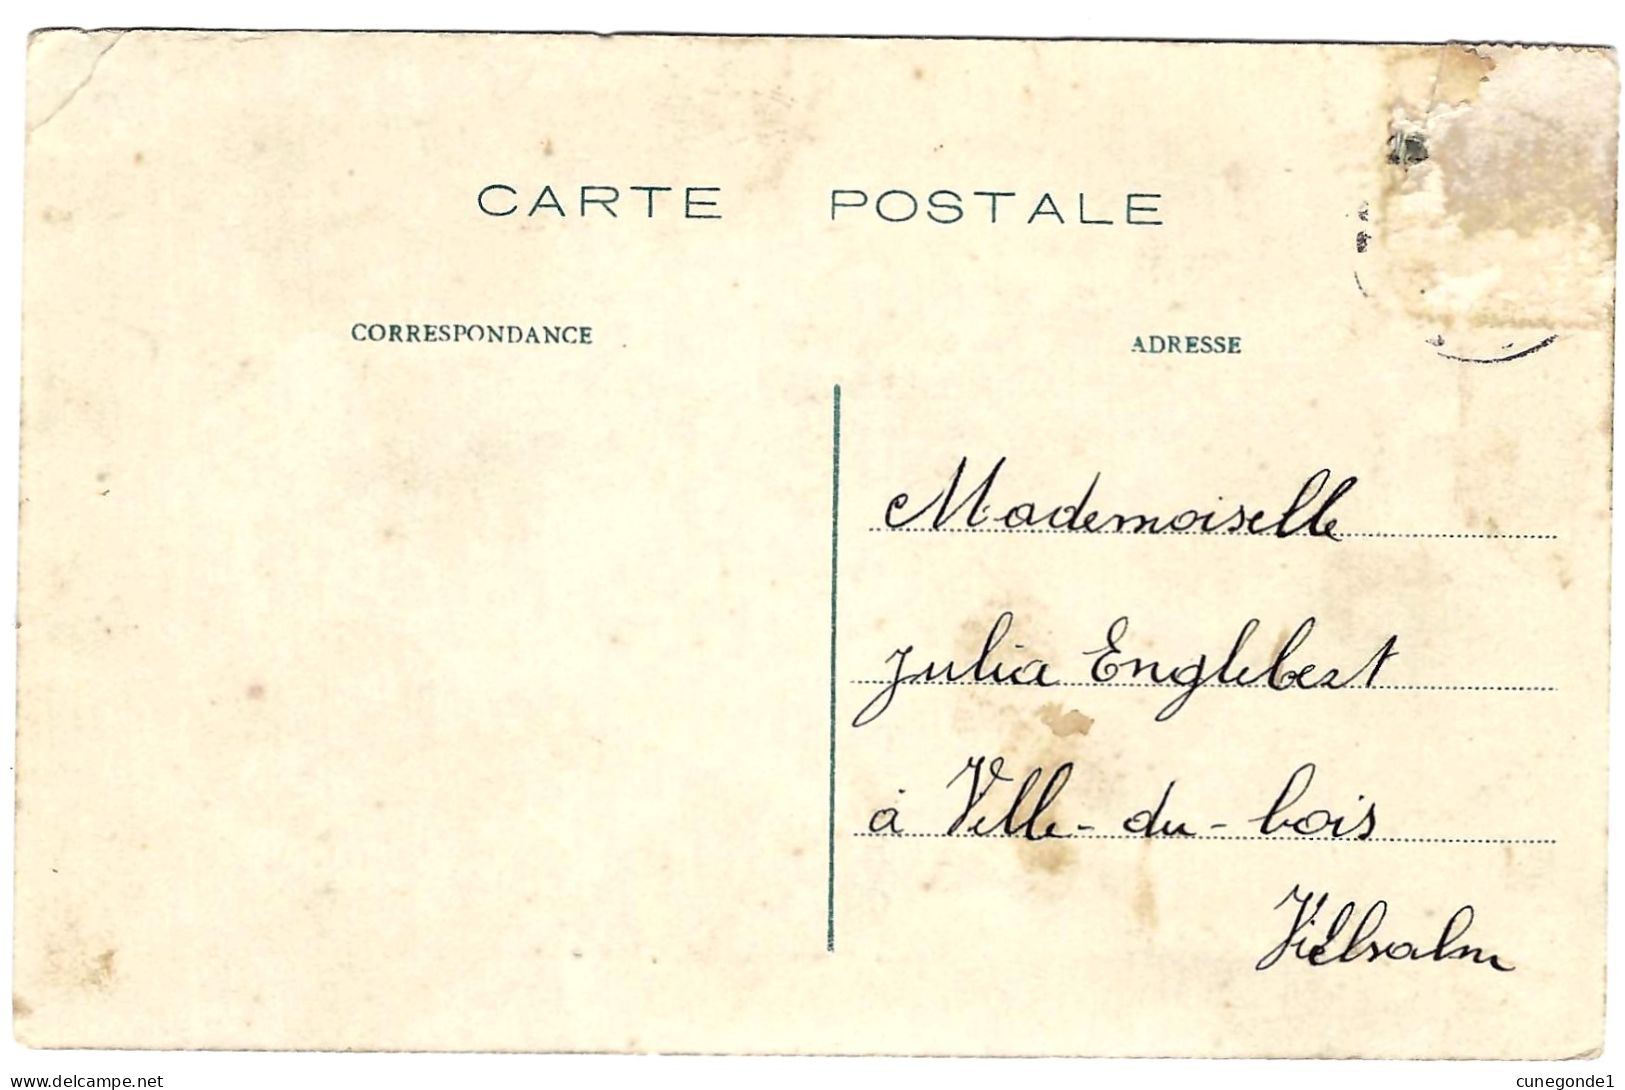 CARTE POSTALE
CORRESPONDANCE
ADRESSE
Mademoiselle
Julia Englebert
à Ville-du-bois
Vielsalm
delcampe.net
cunegonde1